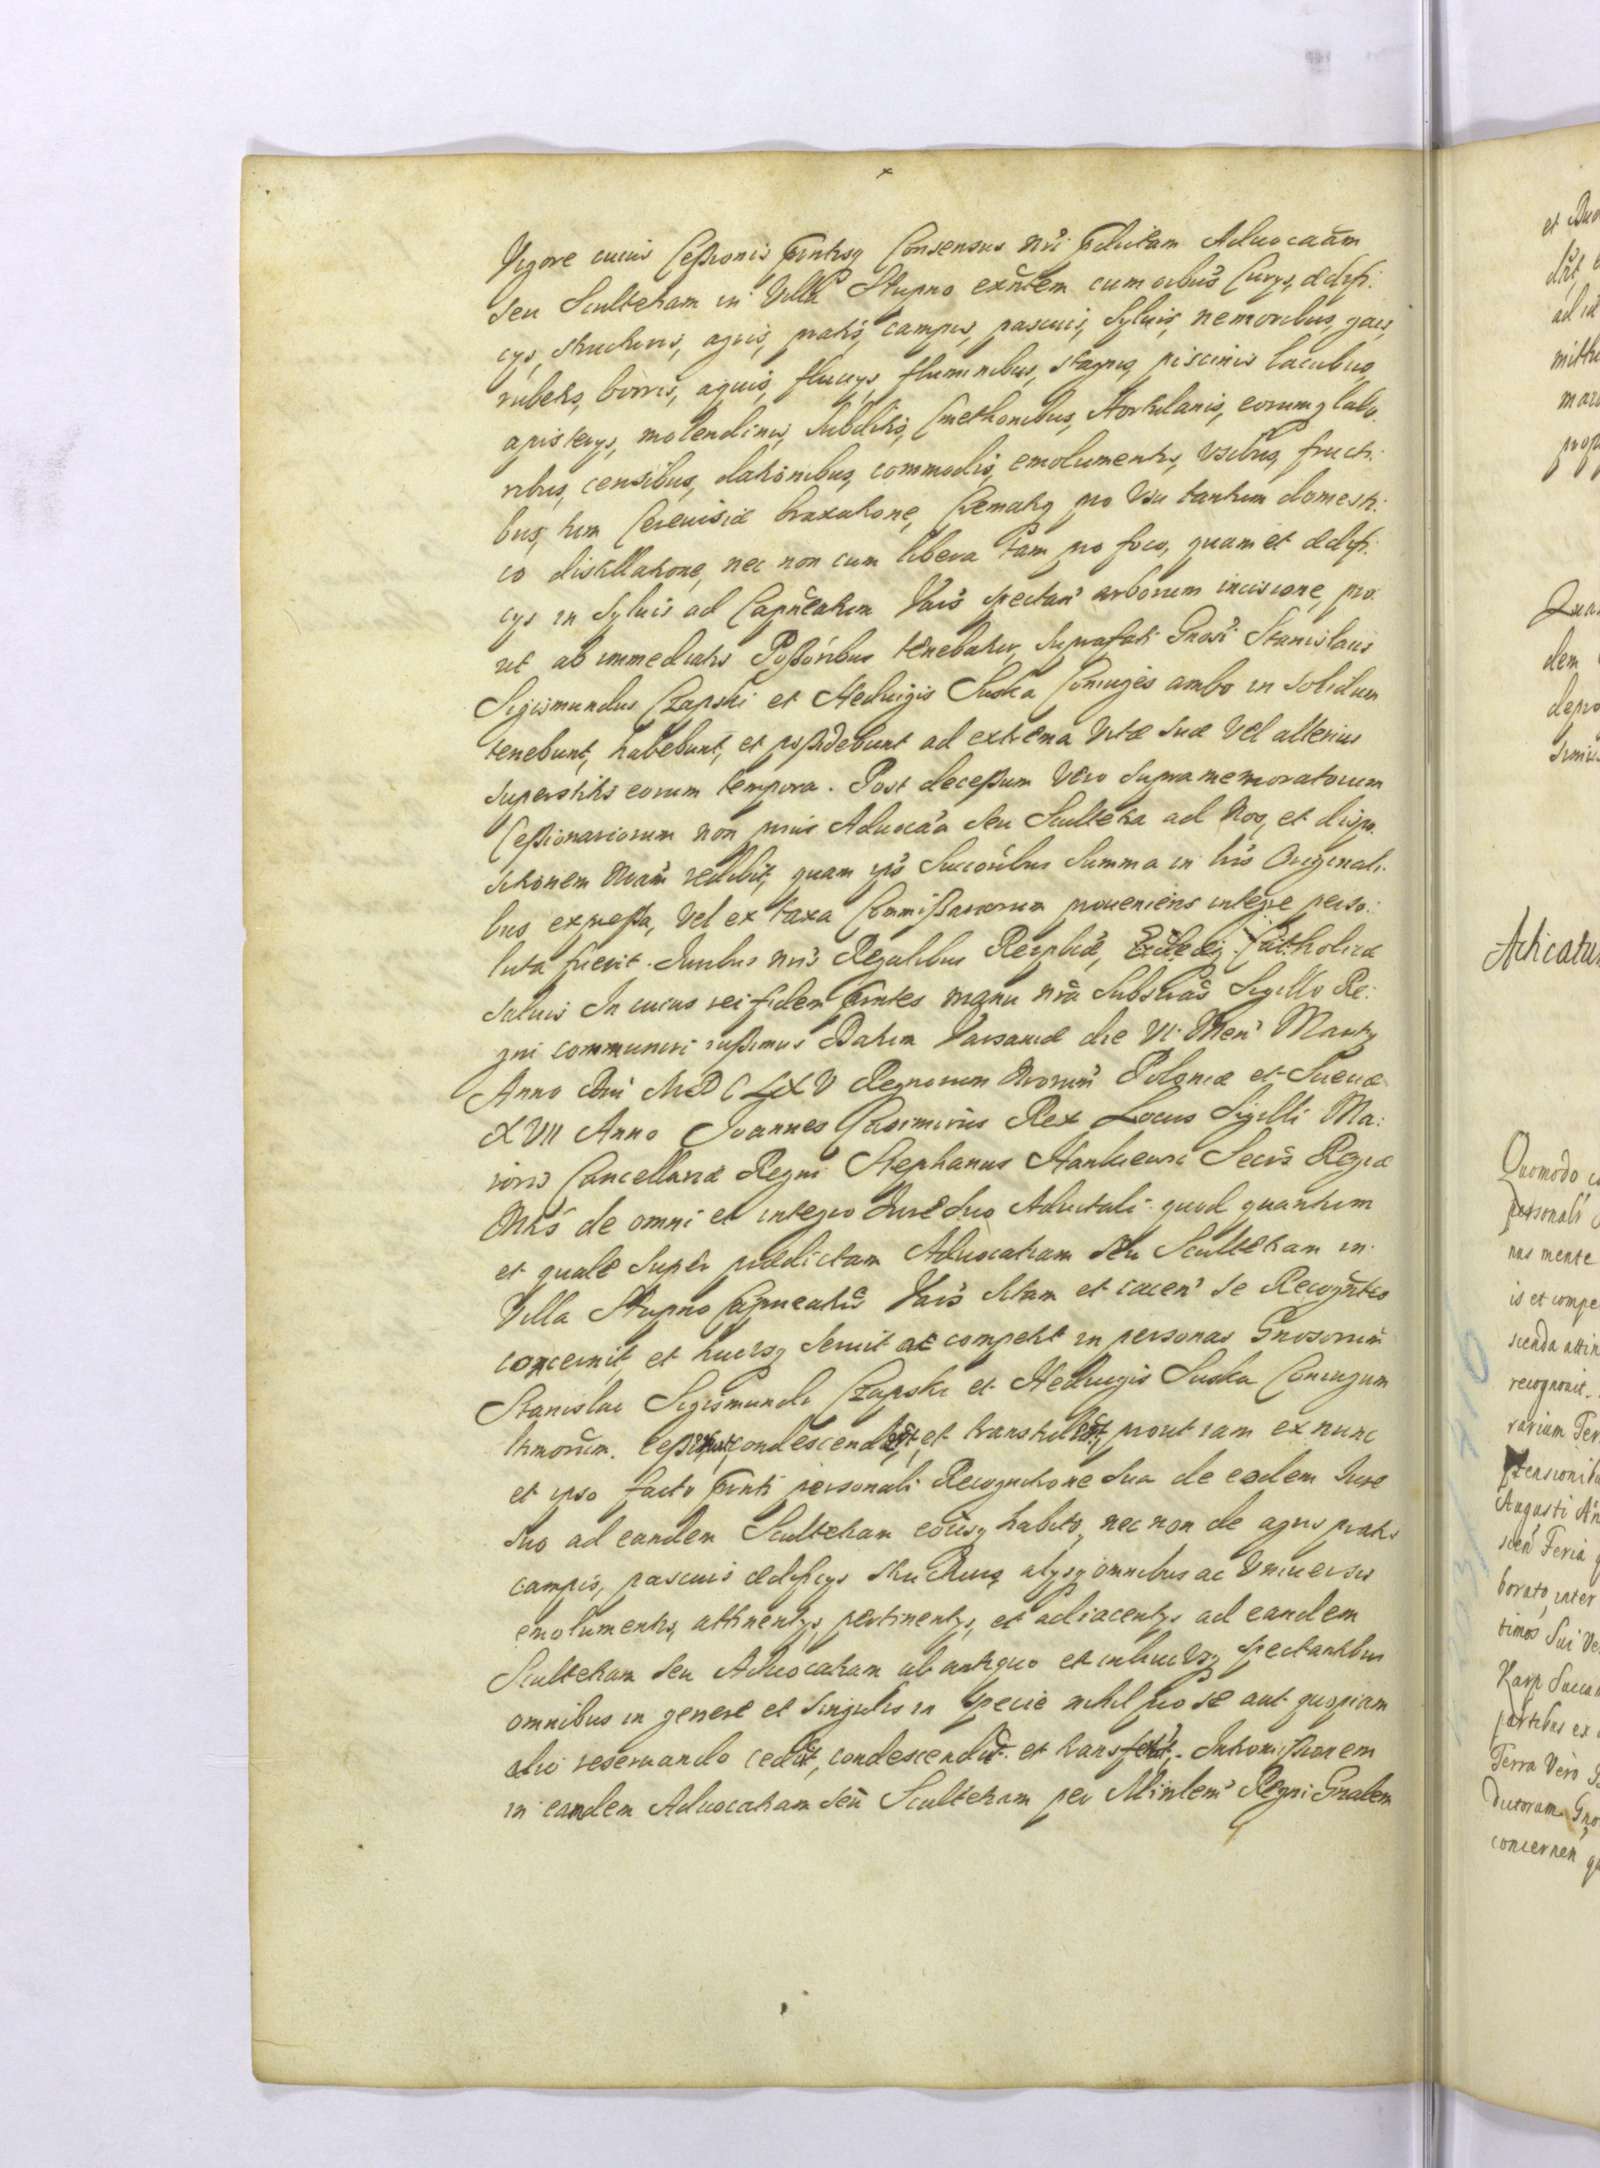 Vigore cuius Cessionis pntisq Consensus nri pdictam Aduocaam
seu Scultetiam in Villa Stupno exntem cum oibus Curys, ædifi:
cys, structuris, agris, pratis, campis, pascuis, syluis, nemoribus, gais,
rubetis, borris, aquis, fluuys, fluminibus, stagnis, piscinis lacubus,
apisterys, molendinis, subditis, Cmethonibus, Hortulanis, eorumq labo
ribus, censibus, dationibus, commodis, emolumentis, vsibus, fructi:
bus, tum Cereuisiæ braxatione, Crematiq pro Vsu tantum domesti:
co distillatione, nec non cum libera tam pro foco, quam et ædifi:
cys in Syluis ad Capneatum Vars spectan arborum incisione, pro:
ut ab immediatis Possoribus tenebatur, suprafati Gnosi Stanislaus
Sigismundus Czapski et Heduigis Suska Coniuges ambo in solidum
tenebunt, habebunt, et possidebunt ad extrema vitæ suæ vel alterius
superstitis eorum tempora. Post decessum vero supramemoratorum
Cessionariorum non prius Aduocaa seu Scultetia ad Nos, et dispo
sitionem nram redibit, quam ipis Succoribus Summa in lris Originali
bus expressa, vel ex taxa Commissariorum proueniens integre perso:
luta fuerit. Juribus nris Regalibus Reiplicæ, Ecclæq Catholicæ
saluis In cuius rei fidem pntes manu nra Subscas Sigillo Re:
gni communiri iussimus Datum Varsauiæ die VI Men Marty
Anno Dni MDCLXV Regnorum nrorum Poloniæ et Sueciæ
XVII Anno Joannes Casimirus Rex Locus Sigilli Ma:
ioris Cancellariæ Regni Stephanus Hankiewic Secrs Regiæ
Mtis de omni et integro Jure suo Aduitali quod quantum
et quale super prædictam Aduocatiam seu Scultetiam in
Villa Stupno Capneatus Vars sitam et iacen se Recognteo
concernit, et hucusq seruit ac competit in personas Gnosorum
Stanislai Sigismundi Czapski et Heduigis Suska Coniugum
et ipso facto pnti personali Recognitione sua de eodem Jure
suo ad eandem Scultetiam eousq habito, nec non de agris pratis
campis, pascuis ædificys structuris, alysq omnibus ac Vniuersis
emolumentis, attinentys, pertinentys, et adiacentys ad eandem
Scultetiam seu Aduocatiam ab antiquo et in hucusq spectantibus
omnibus in genere et singulis in specie nihil pro se aut quopiam
alio reseruando cedit, condescendit et transfert. Intromissionem
in eandem Aduocatiam seu Scultetiam per Minlem Regni Gnalem